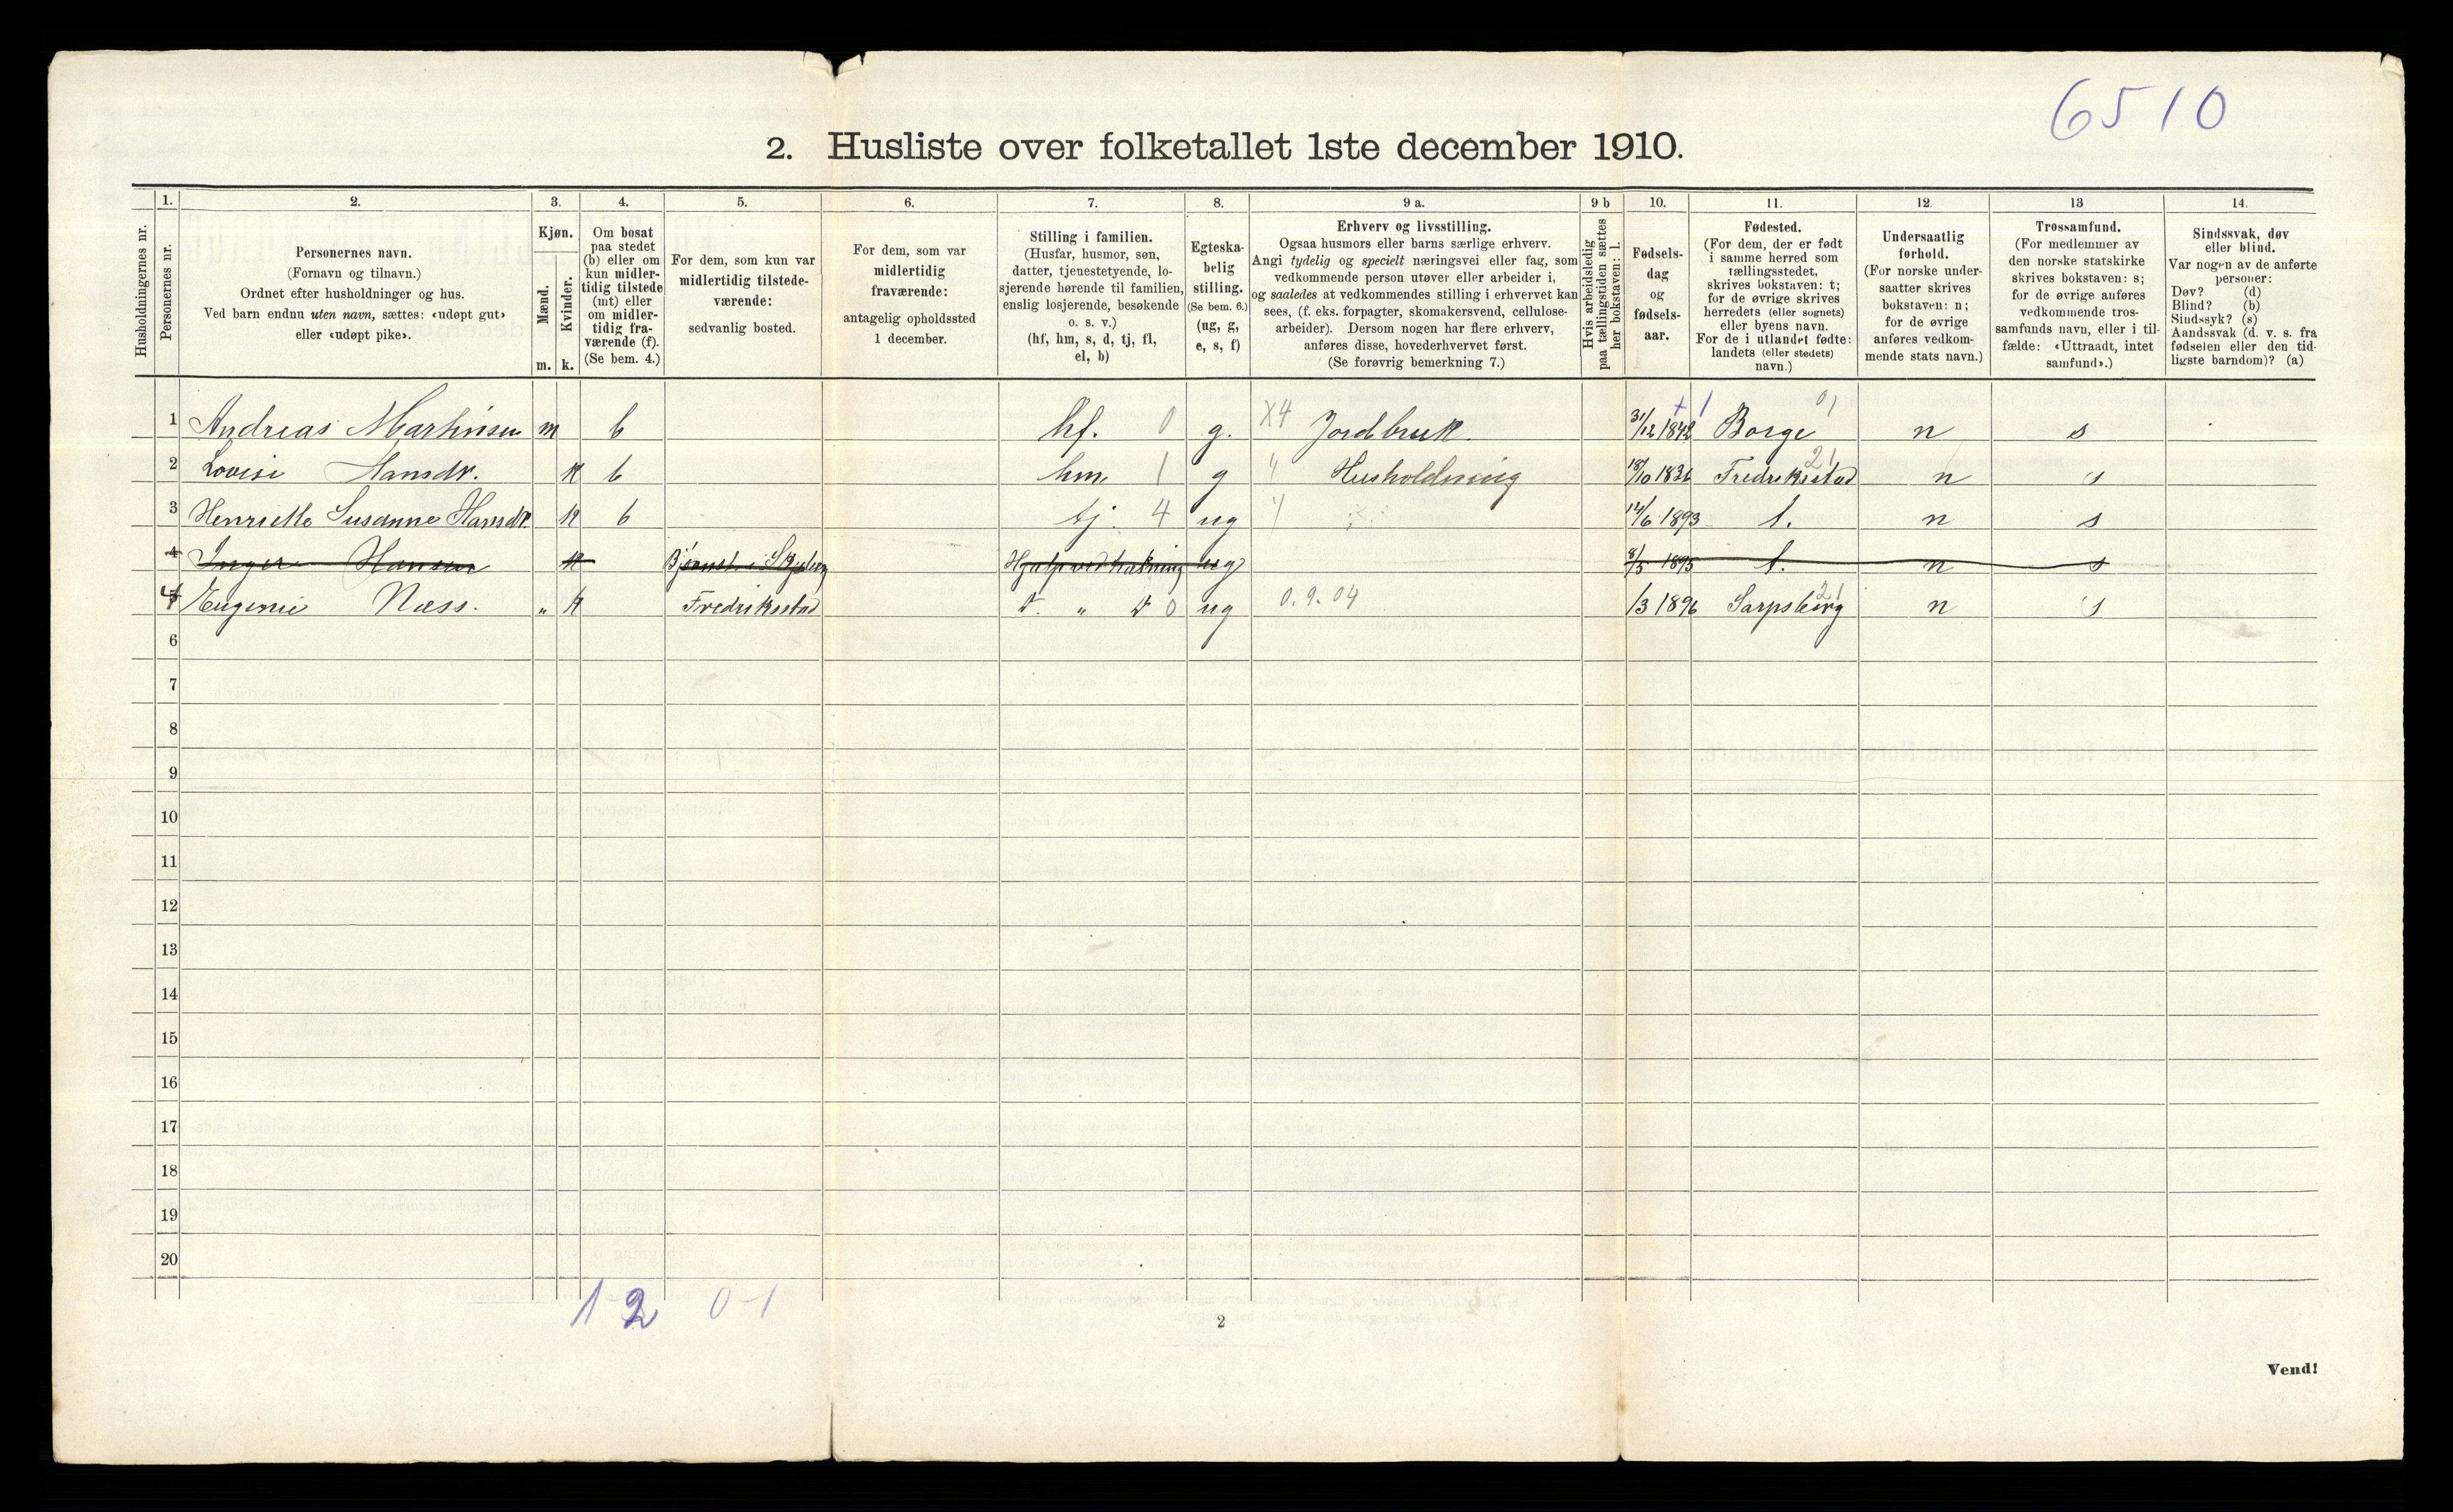 6510
2. Husliste over folketallet 1ste december 1910.
Husholdningernes nr.
1.
Personernes nr.
2.
Personernes navn.
(Fornavn og tilnavn.)
Ordnet efter husholdninger og hus.
Ved barn endnu uten navn, sættes: «udøpt gut»
eller «udøpt pike».
3.
Kjøn.
Mænd.
Kvinder.
m. k.
4.
Om bosat
paa stedet
(b) eller om
kun midler-
tidig tilstede
(mt) eller
om midler-
tidig fra-
værende (f).
(Se bem. 4.)
5.
For dem, som kun var
midlertidig tilstede-
værende:
sedvanlig bosted.
6.
For dem, som var
midlertidig
fraværende:
antagelig opholdssted
1 december.
7.
Stilling i familien.
(Husfar, husmor, søn,
datter, tjenestetyende, lo-
sjerende hørende til familien,
enslig losjerende, besøkende
o. s. v.)
(hf, hm, s, d, tj, fl,
el, b)
8.
Egteska-
belig
stilling.
(Se bem. 6.)
(ug, g,
e, s, f)
9 a.
Erhverv og livsstilling.
Ogsaa husmors eller barns særlige erhverv.
Angi tydelig og specielt næringsvei eller fag, som
vedkommende person utøver eller arbeider i,
og saaledes at vedkommendes stilling i erhvervet kan
sees, (f. eks. forpagter, skomakersvend, cellulose-
arbeider). Dersom nogen har flere erhverv,
anføres disse, hovederhvervet først.
(Se forøvrig bemerkning 7.)
9 b
Hvis arbeidsledig
paa tællingstiden sættes
her bokstaven: l.
10.
Fødsels-
dag
og
fødsels-
aar.
11.
Fødested.
(For dem, der er født
i samme herred som
tællingsstedet,
skrives bokstaven: t;
for de øvrige skrives
herredets (eller sognets)
eller byens navn.
For de i utlandet fødte:
landets (eller stedets)
navn.)
12.
Undersaatlig
forhold.
(For norske under-
saatter skrives
bokstaven: n;
for de øvrige
anføres vedkom-
mende stats navn.)
13
Trossamfund.
(For medlemmer av
den norske statskirke
skrives bokstaven: s;
for de øvrige anføres
vedkommende tros-
samfunds navn, eller i til-
fælde: «Uttraadt, intet
samfund».)
14.
Sindssvak, døv
eller blind.
Var nogen av de anførte
personer:
Døv? (d)
Blind? (b)
Sindssyk? (s)
Aandssvak (d. v. s. fra
fødselen eller den tid-
ligste barndom)? (a)
1 Andreas Martinsen m b hf. 0 g. X4 Jordbruk. 31/12 1842 Borge 01 n s
2 Lovise Hansdr. k b hm. 1 g " Husholdning 18/10 1836 Fredriksstad 21 n s
3 Henriette Susanne Hansdr. k b tj. 4 ug " 14/6 1893 t. n s
4 Inger Hansen k i Skjeberg Hjælp ug 8/5 1895 t. n s
4 Eugenie Næss. " k Fredriksstad " 0 ug 0.9.04 /3 1896 Sarpsborg 21 n s
6
7
8
9
10
11
12
13
14
15
16
17
18
19
20
1-2 0-1
2
Vend!